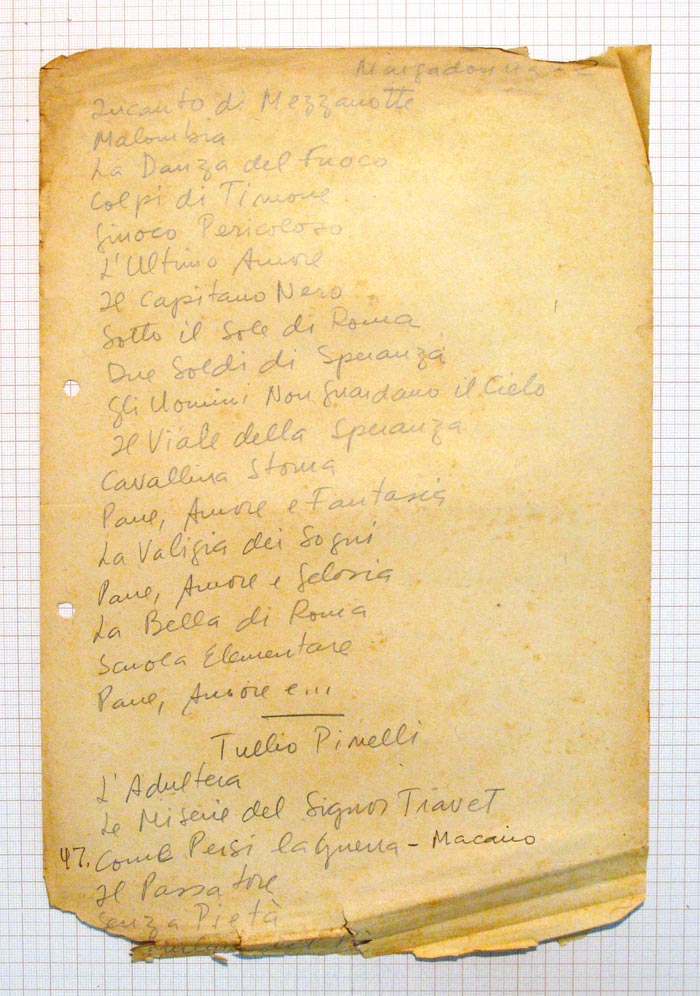 Margadonna
Incanto di Mezzanotte
Malombra
La Danza del Fuoco
Colpi di Timone
Giuoco Pericoloso
L'Ultimo Amore
Il Capitano Nero
Sotto il Sole di Roma
Due Soldi di Speranza
Gli Uomini Non Guardano il Cielo
Il Viale della Speranza
Cavallina Storna
Pane, Amore e Fantasia
La Valigia dei Sogni
Pane, Amore e Gelosia
La Bella di Roma
Scuola Elementare
Pane, Amore e...
Tullio Pinelli
L'Adultera
Le Miserie del Signor Travet
47. Come Persi la Guerra - Macario
Il Passatore
Senza Pietà